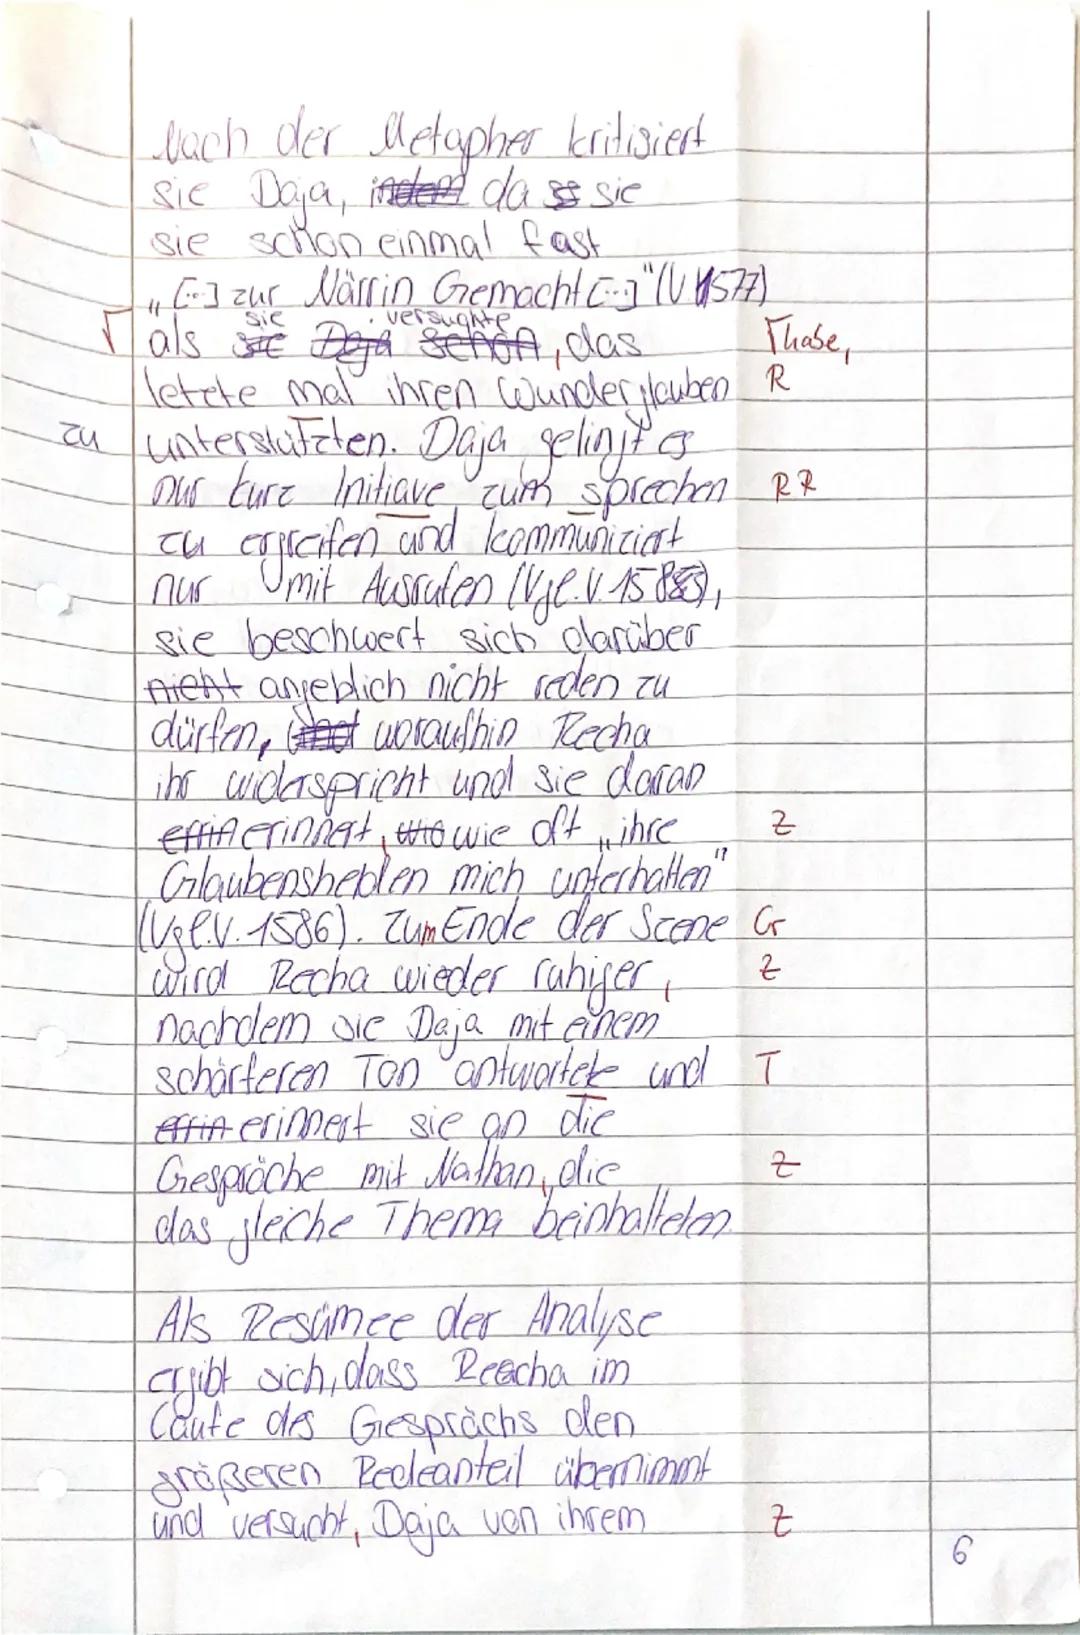 Nach der Metapher kritisiert
sie Daja, indem dass sie
sie schon einmal fast
„[...] zur Närrin Gemacht [...]" (V 1577)
sie versuchte
√ als sie Daja schon, das Γhabe,
letzte mal ihren Wunderglauben R
zu unterstützten. Daja gelingt es
nur kurz Initiave zum sprechen RR
zu ergreifen und kommuniziert
nur mit Ausrufen (Vgl. V. 1585),
sie beschwert sich darüber
nicht angeblich nicht reden zu
dürfen, woraufhin Recha
ihr widerspricht und sie daran
errin erinnert, wie oft „ihre Z
Glaubenshelden mich unterhalten"
(Vgl. V. 1586). Zum Ende der Szene Gr
wird Recha wieder ruhiger, Z
nachdem sie Daja mit einem
schärferen Ton antwortete und T
errin erinnert sie an die
Gespräche mit Nathan, die Z
das gleiche Thema beinhalteten.
Als Resümee der Analyse
ergibt sich, dass Recha im
Laufe des Gesprächs den
größeren Redeanteil übernimmt
und versucht, Daja von ihrem Z
6